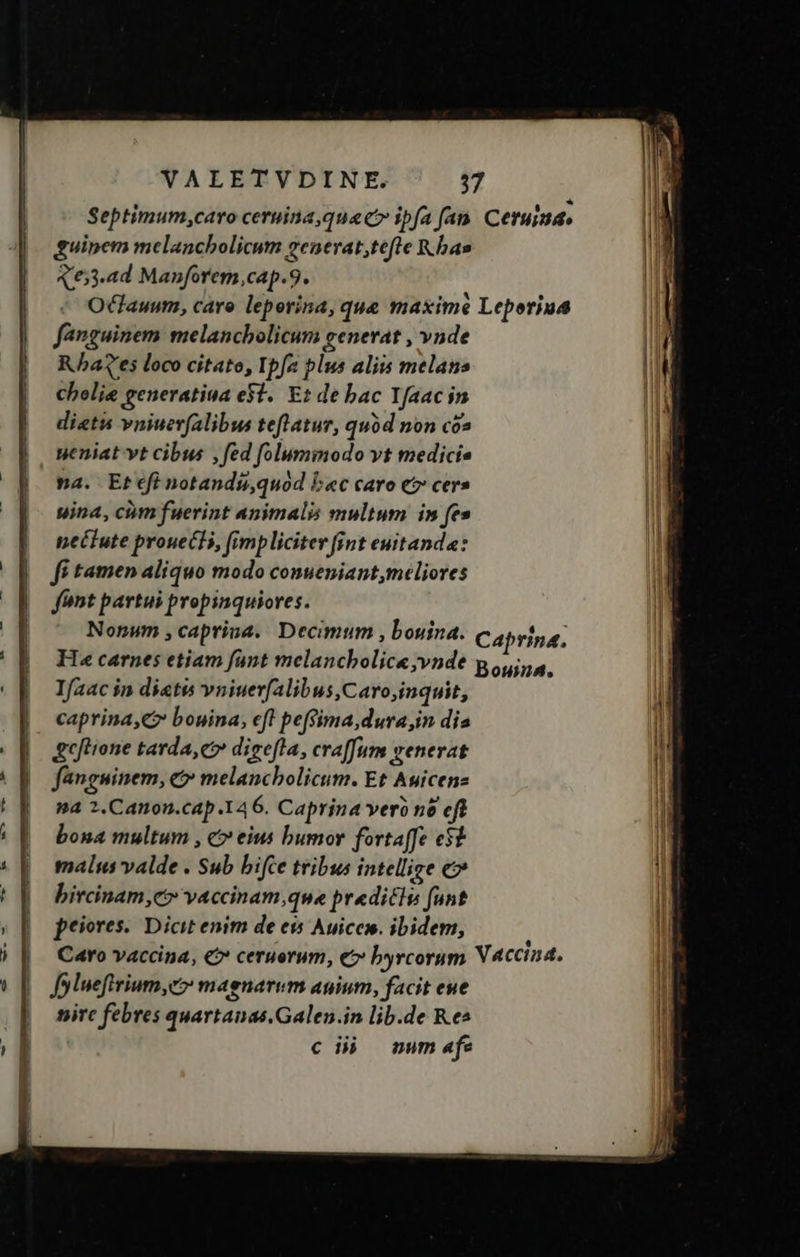 VALETVDINE. 37
Septimum,caro ceruina,quæ & ipsa san Ceruina.
guinem melancholicum generat,teste Rhas
Zes3.ad Mansorem,cap.9.
Octauum, caro leporina, quæ maximè Leporina
sanguinem melancholicum generat , vnde
Rhazes loco citato, Ipsa plus aliis melans
choliæ generatiua est. Et de hac Ysaac in
diætis vniuersalibus testatur, quòd non cōs
ueniat vt cibus , sed solummodo vt medicis
na. Et est notandū,quòd hæc caro & cers
uina, cùm fuerint animalis multum in ses
nectute prouecti, simpliciter sint euitandæ:
si tamen aliquo modo conueniant,meliores
sunt partui propinquiores.
Nonum , caprina. Decimum , bouina. Caprina.
Hæ carnes etiam sunt melancholicæ,vnde Bouina.
Isaac in diætis vniuersalibus,Caro,inquit,
caprina,& bouina, est pessima,dura,in dis
gestione tarda,& digesta, crassum generat
sanguinem, & melancholicum. Et Auicens
na 2.Canon.cap.146. Caprina verò nō est
bona multum , & eius humor fortasse est
malus valde . Sub hisce tribus intellige &
hircinam,& vaccinam,quæ prædictis sunt
peiores. Dicit enim de eis Auicen. ibidem,
Caro vaccina, & ceruorum, & hyrcorum Vaccina.
syluestrium,& magnarum auium, facit eue
nire febres quartanas.Galen.in lib.de Res
c iij num afs